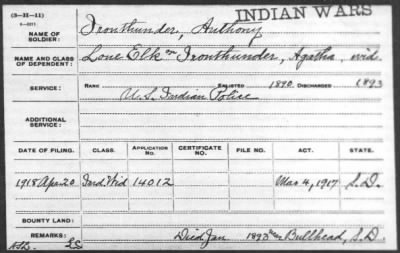 (3-H-11)
INDIAN WARS
NAME OF SOLDIER: Ironthunder, Anthony
NAME AND CLASS OF DEPENDENT: Lone Elk or Ironthunder, Agatha, wid.
SERVICE: RANK ENLISTED 1890 DISCHARGED 1893
U.S. Indian Police
ADDITIONAL SERVICE:
DATE OF FILING. CLASS. APPLICATION NO. CERTIFICATE NO. FILE NO. ACT. STATE.
1918 Apr. 20 Ind. Wid 14012 Mar 4, 1917 S.D.
BOUNTY LAND:
REMARKS: Died Jan 1893 near Bullhead, S.D.